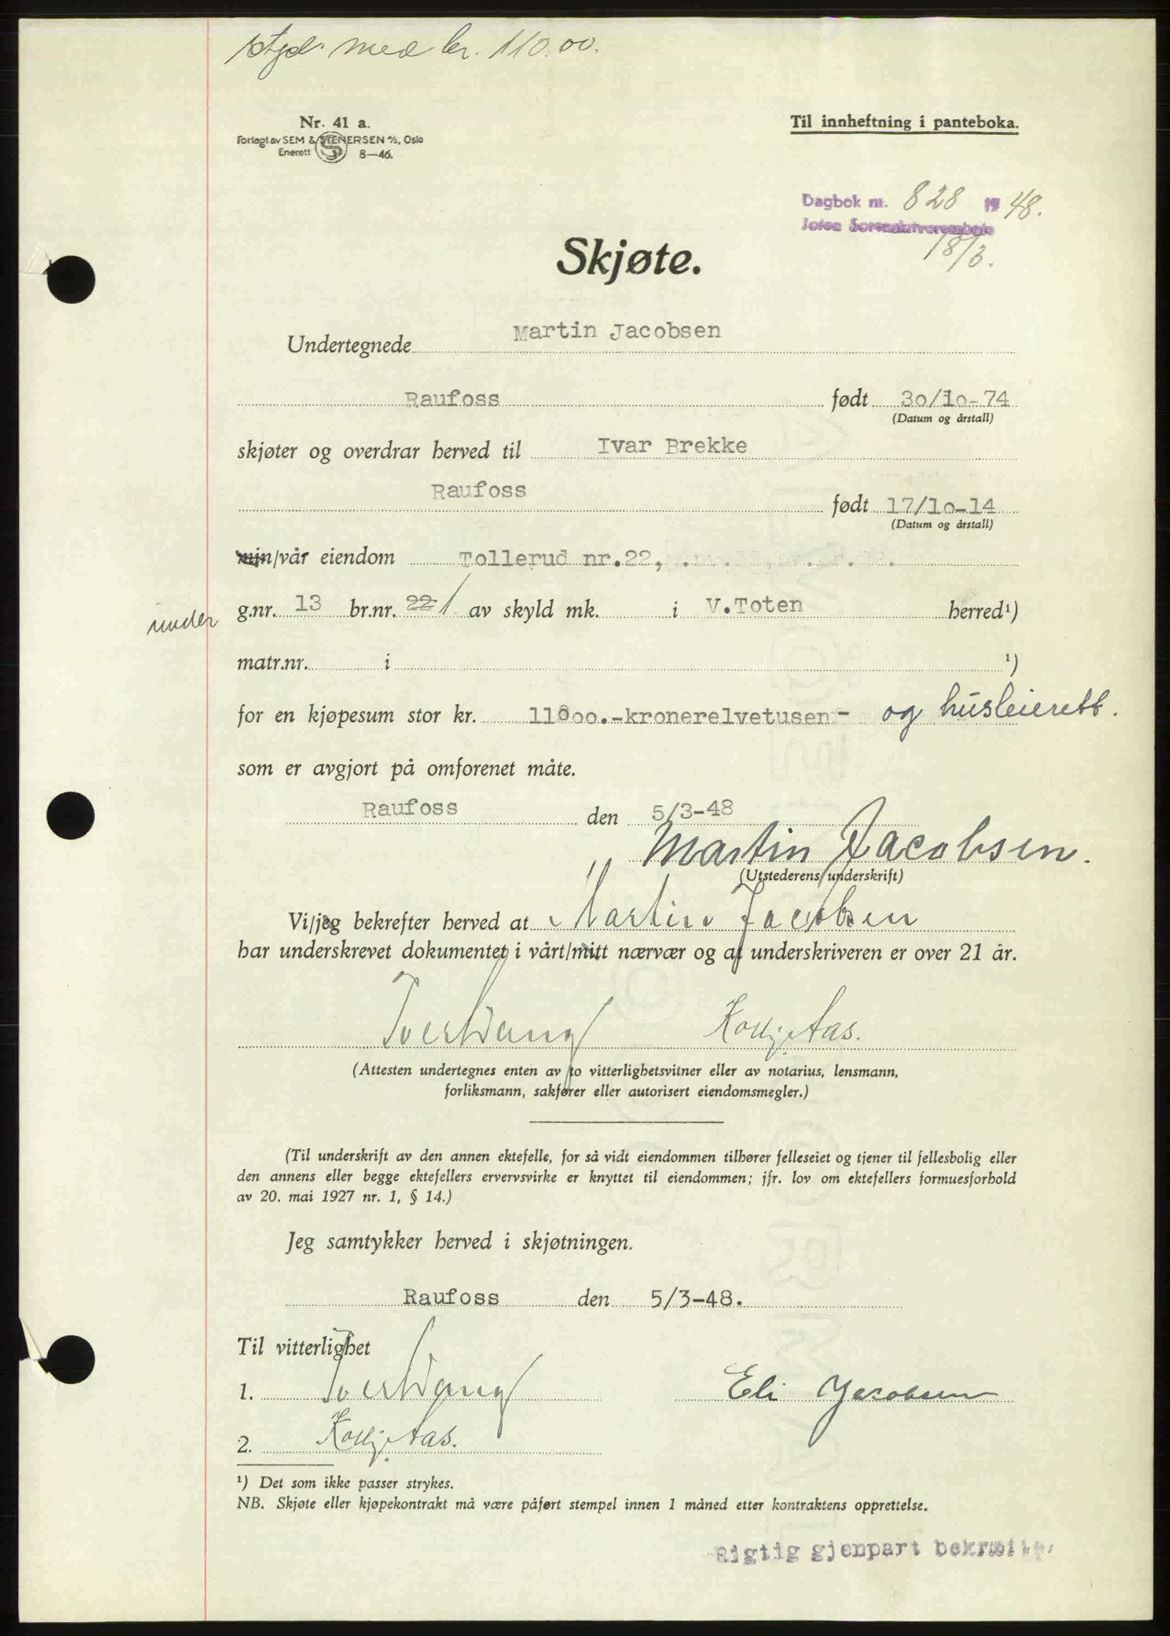 med kr. 110.00.
Nr. 41 a.
Forlagt av SEM & STENERSEN A/S, Oslo
Enerett 8—46.
Til innheftning i panteboka.
Dagbok nr. 828 1948.
Toten Sorenskriverembete
18/3.
Skjøte.
Undertegnede Martin Jacobsen
Raufoss født 30/10-74
(Datum og årstall)
skjøter og overdrar herved til Ivar Brekke
Raufoss født 17/10-14
(Datum og årstall)
min/vår eiendom Tollerud nr.22,
under g.nr. 13 br.nr. 22 1 av skyld mk. i V.Toten herred¹)
matr.nr. i ¹)
for en kjøpesum stor kr. 11000.-kronerelvetusen- og husleierett.
som er avgjort på omforenet måte.
Raufoss den 5/3-48
Martin Jacobsen.
(Utstederens underskrift)
Vi/jeg bekrefter herved at Martin Jacobsen
har underskrevet dokumentet i vårt/mitt nærvær og at underskriveren er over 21 år.
Aas.
(Attesten undertegnes enten av to vitterlighetsvitner eller av notarius, lensmann,
forliksmann, sakfører eller autorisert eiendomsmegler.)
(Til underskrift av den annen ektefelle, for så vidt eiendommen tilhører felleseiet og tjener til fellesbolig eller
den annens eller begge ektefellers ervervsvirke er knyttet til eiendommen; jfr. lov om ektefellers formuesforhold
av 20. mai 1927 nr. 1, § 14.)
Jeg samtykker herved i skjøtningen.
Raufoss den 5/3-48.
Til vitterlighet
1. Eli Jacobsen
2. Aas.
¹) Det som ikke passer strykes.
NB. Skjøte eller kjøpekontrakt må være påført stempel innen 1 måned etter kontraktens opprettelse.
Rigtig gjenpart bekræftes